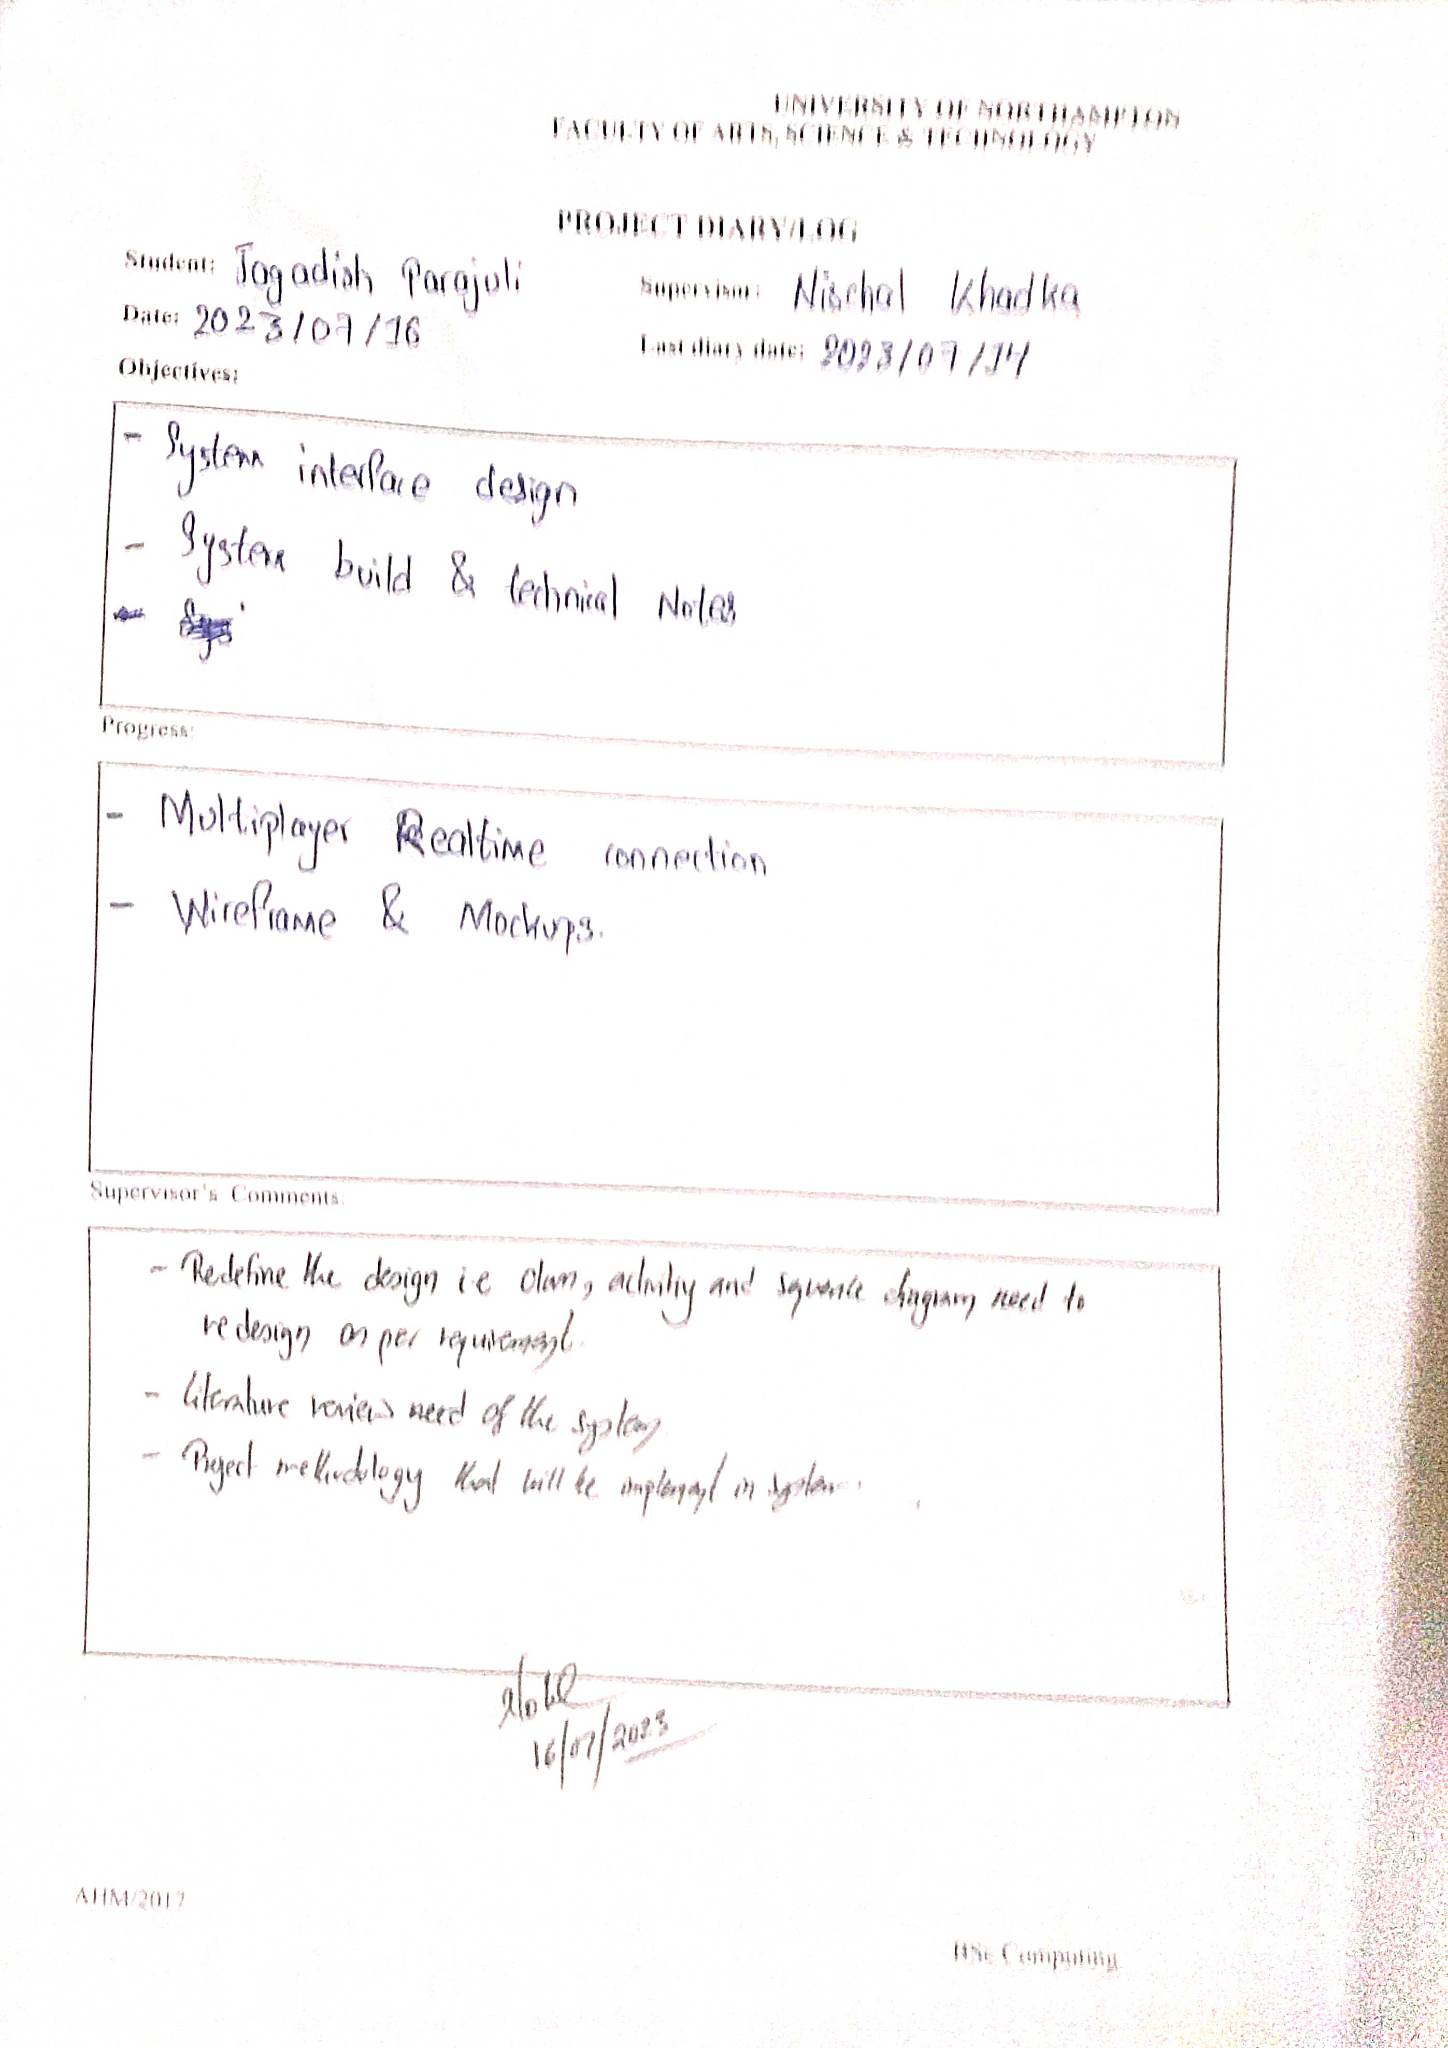 UNIVERSITY OF NORTHAMPTON
FACULTY OF ARTS, SCIENCE & TECHNOLOGY
PROJECT DIARY/LOG
Student: Jagadish Parajuli Supervisor: Nischal Khadka
Date: 2023/07/16 Last diary date: 2023/07/14
Objectives:
- System interface design
- System build & technical Notes
Progress:
- Multiplayer Realtime connection
- Wireframe & Mockups.
Supervisor's Comments:
- Redefine the design i.e activity and diagram need to
redesign as per requirement.
- Literature review need of the system
- Project methodology that will be implement in system.
16/07/2023
AHM/2017
BSc Computing